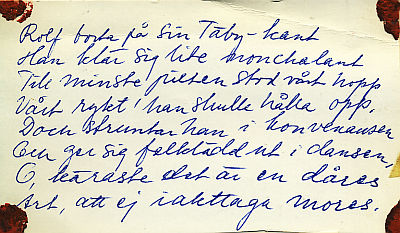 Rolf borta på sin Täby-kant
Han klär sig lite nonchalant
Till minste julten stod vårt hopp
Vårt rykt! han skulle hålla opp,
Doch struntar han i konvenansen
Och ger sig felklädd ut i dansen,
O, käraste det är en dåres
Art, att ej iakttaga mores.